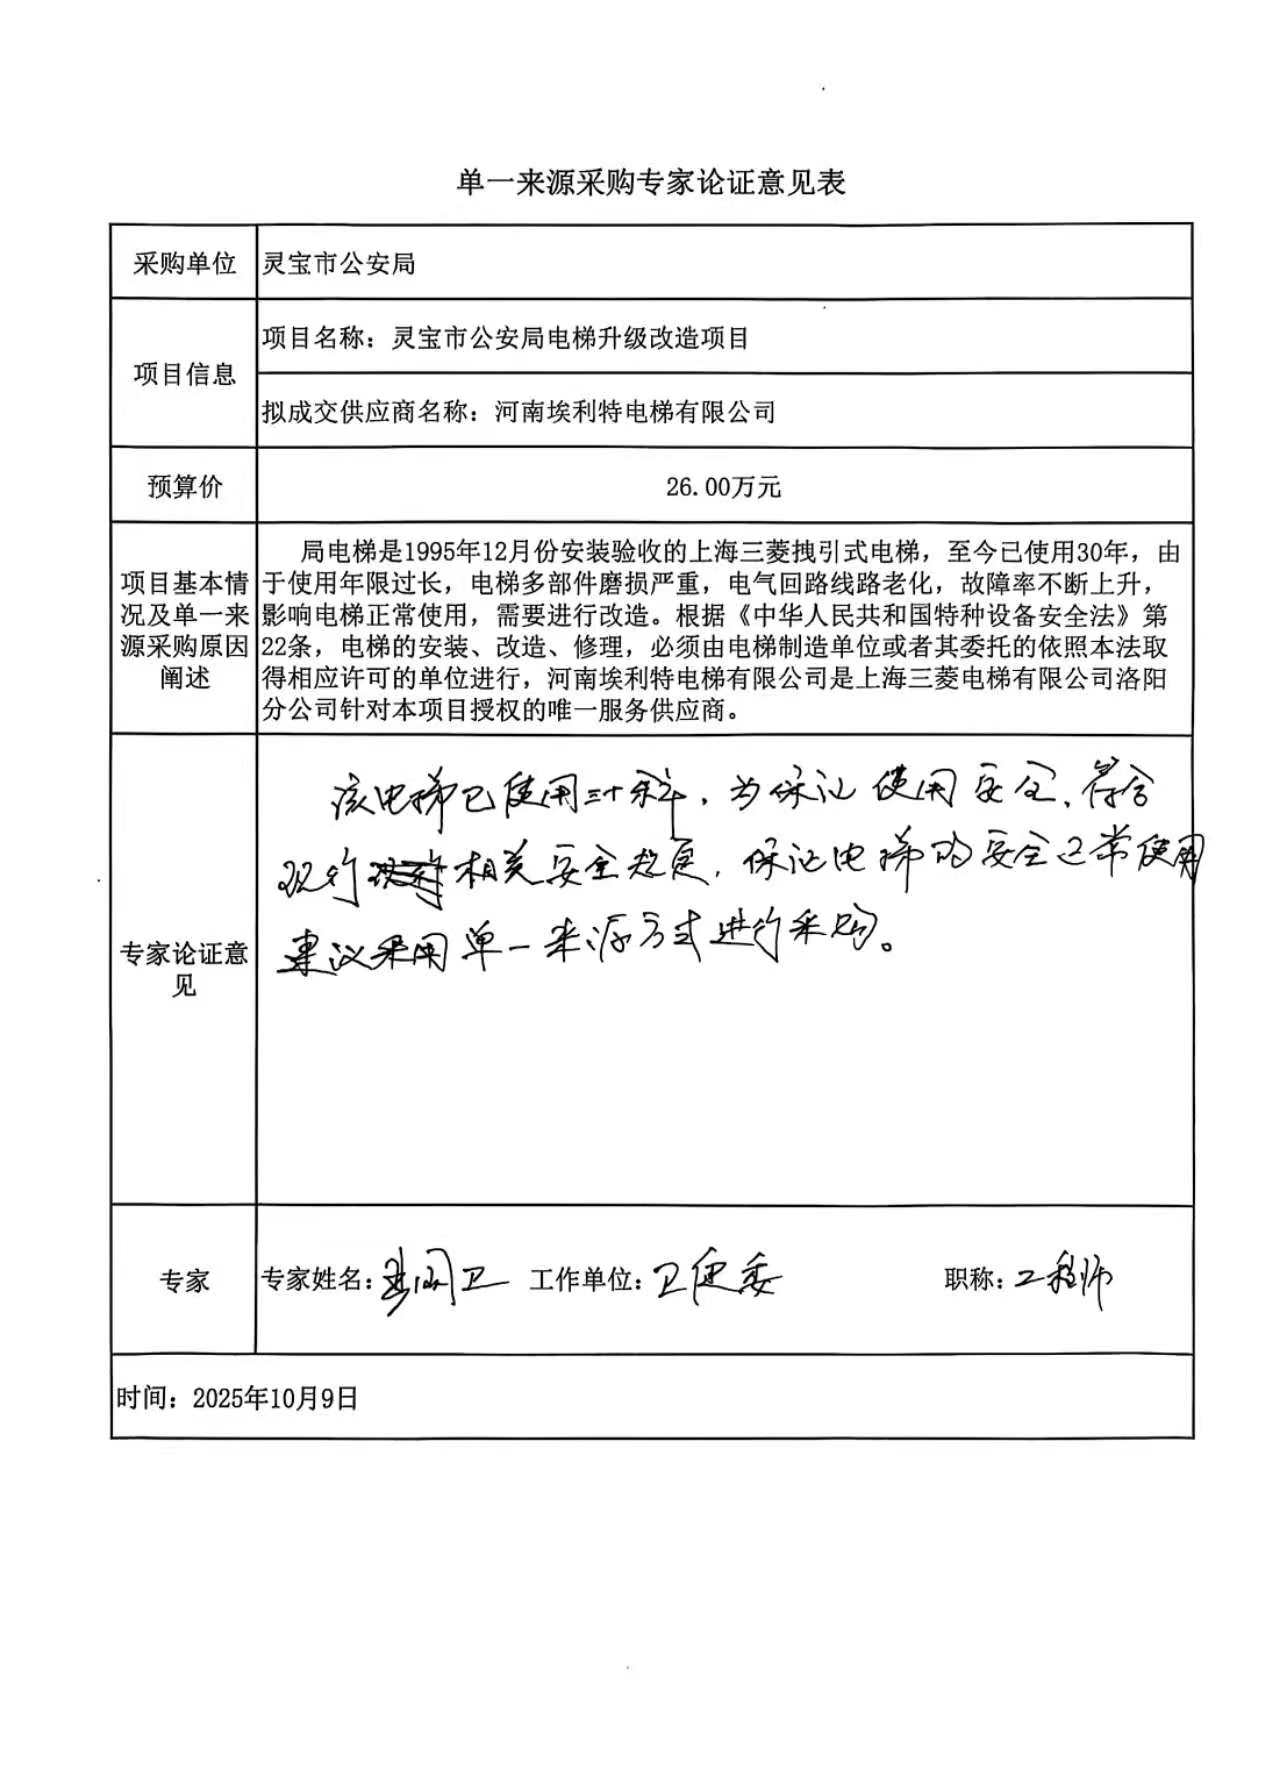 单一来源采购专家论证意见表
采购单位
灵宝市公安局
项目信息
项目名称：灵宝市公安局电梯升级改造项目
拟成交供应商名称：河南埃利特电梯有限公司
预算价
26.00万元
项目基本情
况及单一来
源采购原因
阐述
局电梯是1995年12月份安装验收的上海三菱拽引式电梯，至今已使用30年，由
于使用年限过长，电梯多部件磨损严重，电气回路线路老化，故障率不断上升，
影响电梯正常使用，需要进行改造。根据《中华人民共和国特种设备安全法》第
22条，电梯的安装、改造、修理，必须由电梯制造单位或者其委托的依照本法取
得相应许可的单位进行，河南埃利特电梯有限公司是上海三菱电梯有限公司洛阳
分公司针对本项目授权的唯一服务供应商。
专家论证意
见
该电梯已使用三十余年，为保证使用安全，符合
现行相关安全，保证电梯的安全正常使用
建议采用单一来源方式进行采购。
专家
专家姓名： 卫 工作单位：卫健委 职称：工程师
时间：2025年10月9日